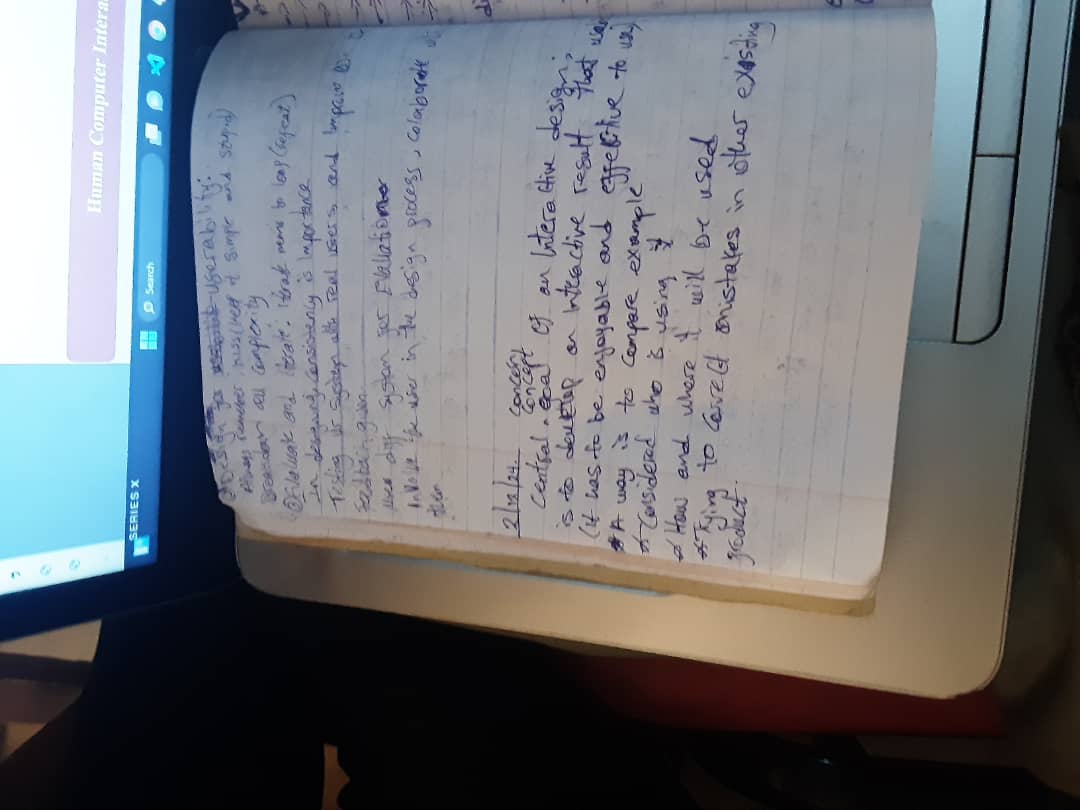 Human Computer Intera
SERIES X
Search
Design for userability:
Always remember: kiss(keep it simple and stupid)
Breakdown all complexity
Evaluate and iterate: iterate means to loop(repeat)
In designing, consistency is Importance
Testing system real users, and improve
given
diff system for Evaluation
Involve the user in the design process, colaborate
them
2/12/24.
concern
concept
Central goal of an Interactive design;
is to develop an interactive result that user
(it has to be enjoyable and effective to use)
* A way is to compare example
* Considered who is using it
* How and where it will be used
* Trying to correct mistakes in other existing
product.